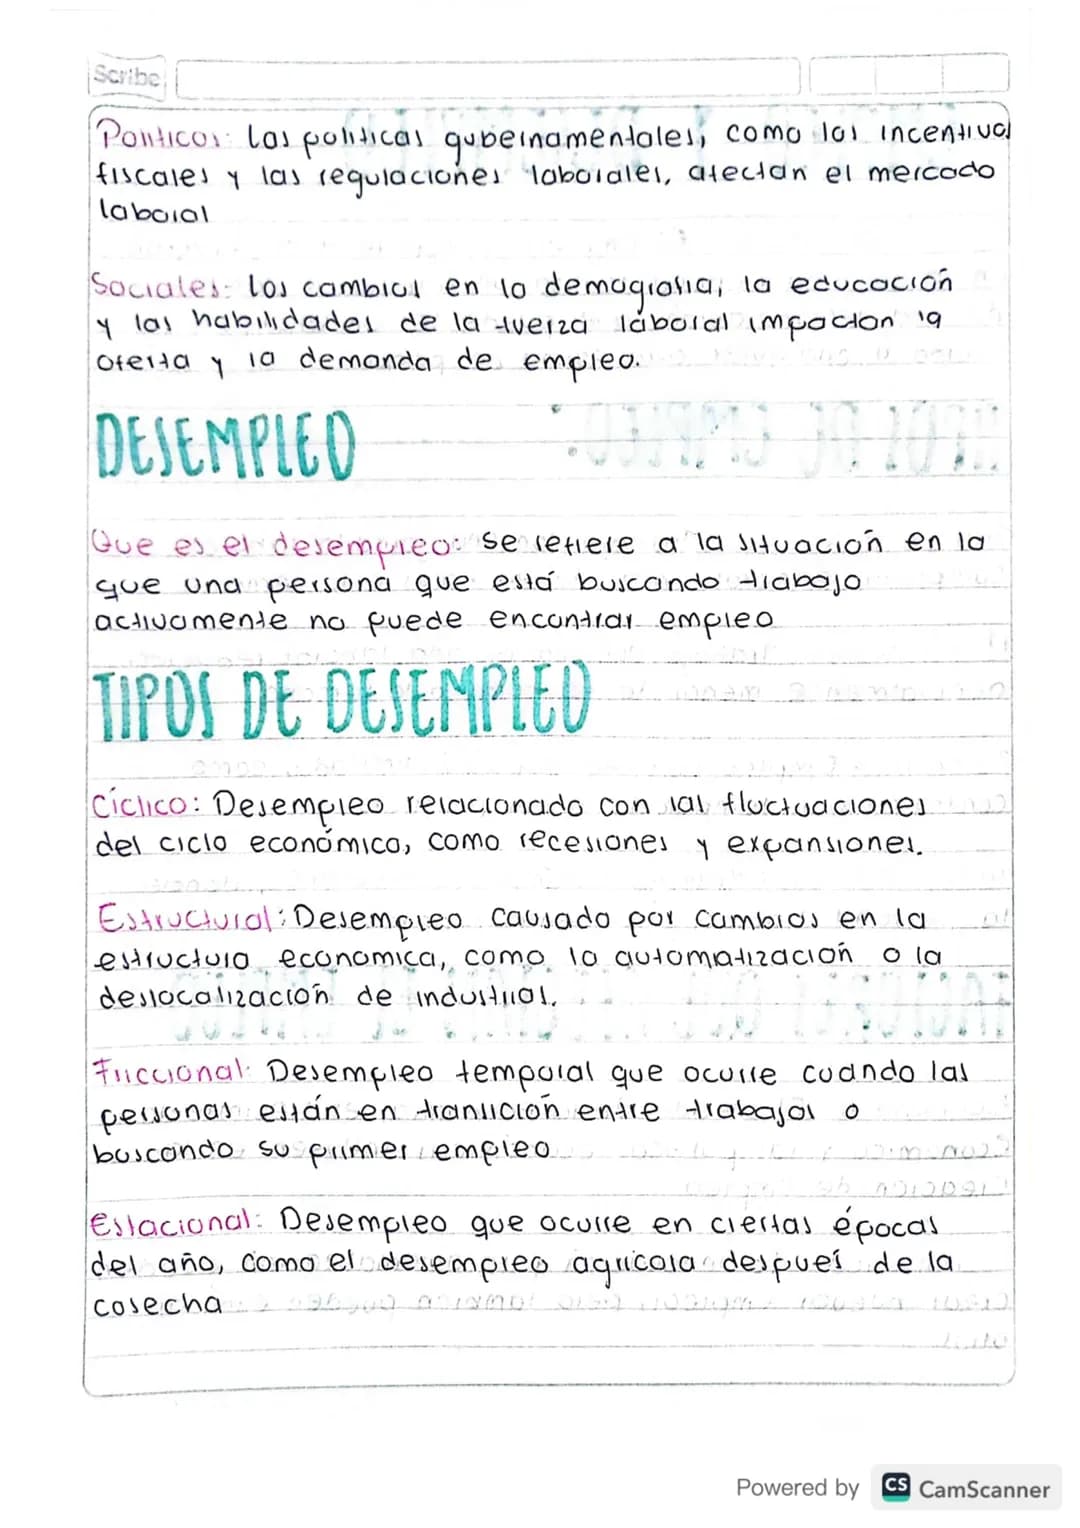 Scribe
Politicos: Las politicas gubernamentales, como los incentivos
fiscales y las regulaciones laborales, afectan el mercado
laboral
Sociales: Los cambios en la demografia, la educación
y las habilidades de la fuerza laboral impactan la
oferta y la demanda de empleo.
DESEMPLEO
Que es el desempleo: Se refiere a la situación en la
que una persona que está buscando trabajo
activamente no puede encontrar empleo
TIPOS DE DESEMPLEO
Cíclico: Desempleo relacionado con las fluctuaciones
del ciclo económico, como recesiones y expansiones.
Estructural: Desempleo causado por cambios en la
estructura economica, como la automatización o la
deslocalización de industrias.
Friccional: Desempleo temporal que ocurre cuando las
personas están en transición entre trabajos o
buscando su primer empleo
Estacional: Desempleo que ocurre en ciertas épocas
del año, como el desempleo agricola después de la
cosecha
Powered by CS CamScanner